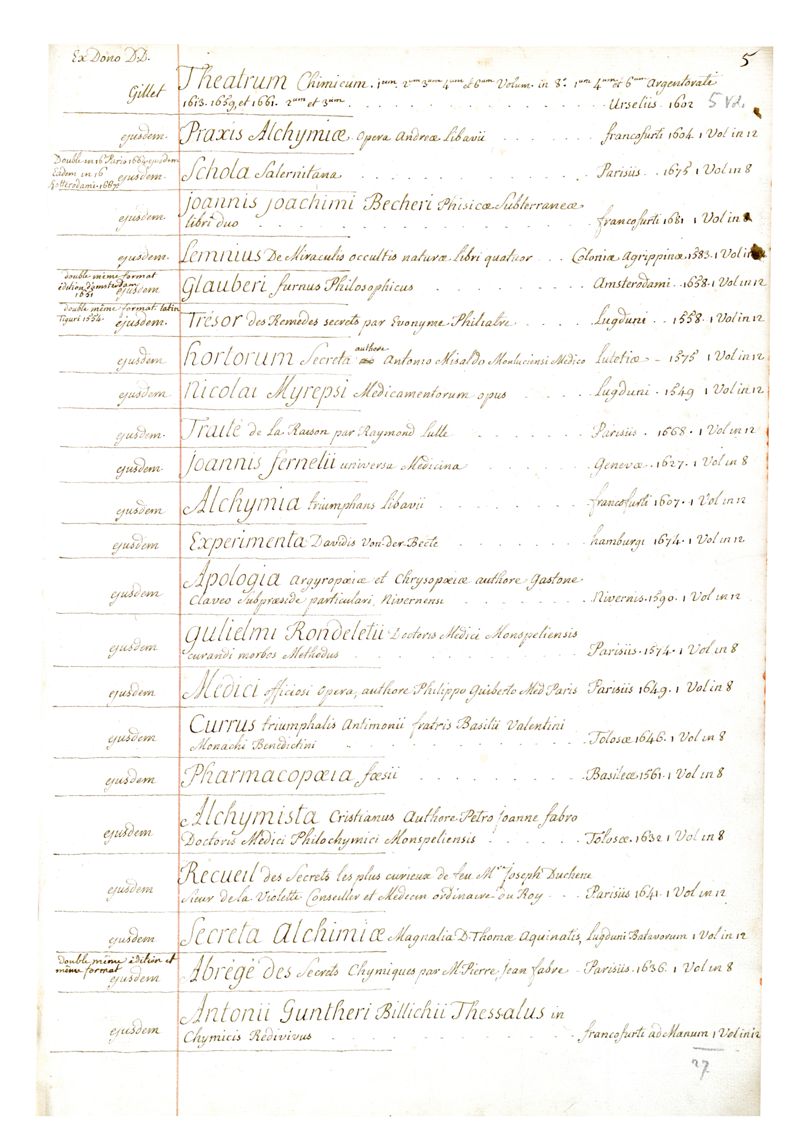 5
Ex Dono D.D.
Gillet Theatrum Chimicum. 1um 2um 3um 4um et 6um Volum. in 8º. 1um 4um et 6um Argentorati
1613. 1659, et 1661. 2um et 3um . . . . . . . . Urseliis 1602 5 Vol.
ejusdem Praxis Alchymiæ Opera Andreæ Libavii . . . . . francofurti 1604. 1 Vol in 12
Double in 16 Paris 1664 ejusdem
Eadem in 16
Rotterodami. 1667
ejusdem. Schola Salernitana . . . . . . . . Parisiis . . 1675 1 Vol in 8
joannis joachimi Becheri Phisicæ Subterraneæ
ejusdem. libri duo . . . . . . . . . francofurti 1681 1 Vol in 8
ejusdem. Lemnius De Miraculis occultis naturæ Libri quatuor . . Coloniæ Agrippinæ. 1583. 1 Vol in
double même format
édition d'amsterdam
1651
ejusdem Glauberi furnus Philosophicus . . . . . Amsterodami . 1658. 1 Vol in 12
double même format. latin
Tiguri 1554. ejusdem. Trésor des Remedes secrets par Evonyme Philiatre . . . Lugduni . . 1558. 1 Vol in 12
authore
ejusdem hortorum Secreta Antonio Misaldo Monluciensi Medico Lutetiæ - 1575 1 Vol in 12
ejusdem. Nicolai Myrepsi Medicamentorum opus . . . Lugduni . 1549 1 Vol in 12
ejusdem. Traité de La Raison par Raymond Lulle . . . . . Parisiis . 1668. 1 Vol in 12
ejusdem. joannis fernelii universa Medicina . . . . . Genevæ . 1627. 1 Vol in 8
ejusdem Alchymia triumphans Libavii . . . . . francofurti 1607. 1 Vol in 12
ejusdem Experimenta Davidis Von-der-Becte . . . . . hamburgi 1674. 1 Vol in 12
Apologia argyropœiæ et Chrysopœiæ authore Gastone
ejusdem. Claveo Subpræside particulari, Nivernensi . . . . . Nivernis. 1590. 1 Vol in 12
Gulielmi Rondeletii Doctoris Medici Monspeliensis
ejusdem curandi morbos Methodus . . . . . . . . Parisiis. 1574. 1 Vol in 8
ejusdem Medici officiosi Opera, authore Philippo Guiberto Med Paris Parisiis 1649. 1 Vol in 8
Currus triumphalis Antimonii fratris Basilii Valentini
ejusdem Monachi Benedictini . . . . . . . . Tolosæ 1646. 1 Vol in 8
ejusdem Pharmacopœia fœsii . . . . . . . Basileæ 1561. 1 Vol in 8
Alchymista Cristianus Authore Petro joanne fabro
ejusdem Doctoris Medici Philochymici Monspeliensis . . . . Tolosæ. 1632 1 Vol in 8
Récueil des Secrets les plus curieux de feu Mre. joseph Duchene
ejusdem Sieur de la Violette Conseiller et Medecin ordinaire du Roy . . . Parisiis 1641. 1 Vol in 12
ejusdem Secreta Alchimiæ Magnalia D. Thomæ Aquinatis, Lugduni Batavorum 1 Vol in 12
double même édition et
même format
ejusdem Abrégé des Secrets Chymiques par Mr Pierre jean fabre - Parisiis. 1636. 1 Vol in 8
Antonii Guntheri Billichii Thessalus in
ejusdem Chymicis Redivivus . . . . . . . . francofurti ad Mænum 1 Vol in 12
27